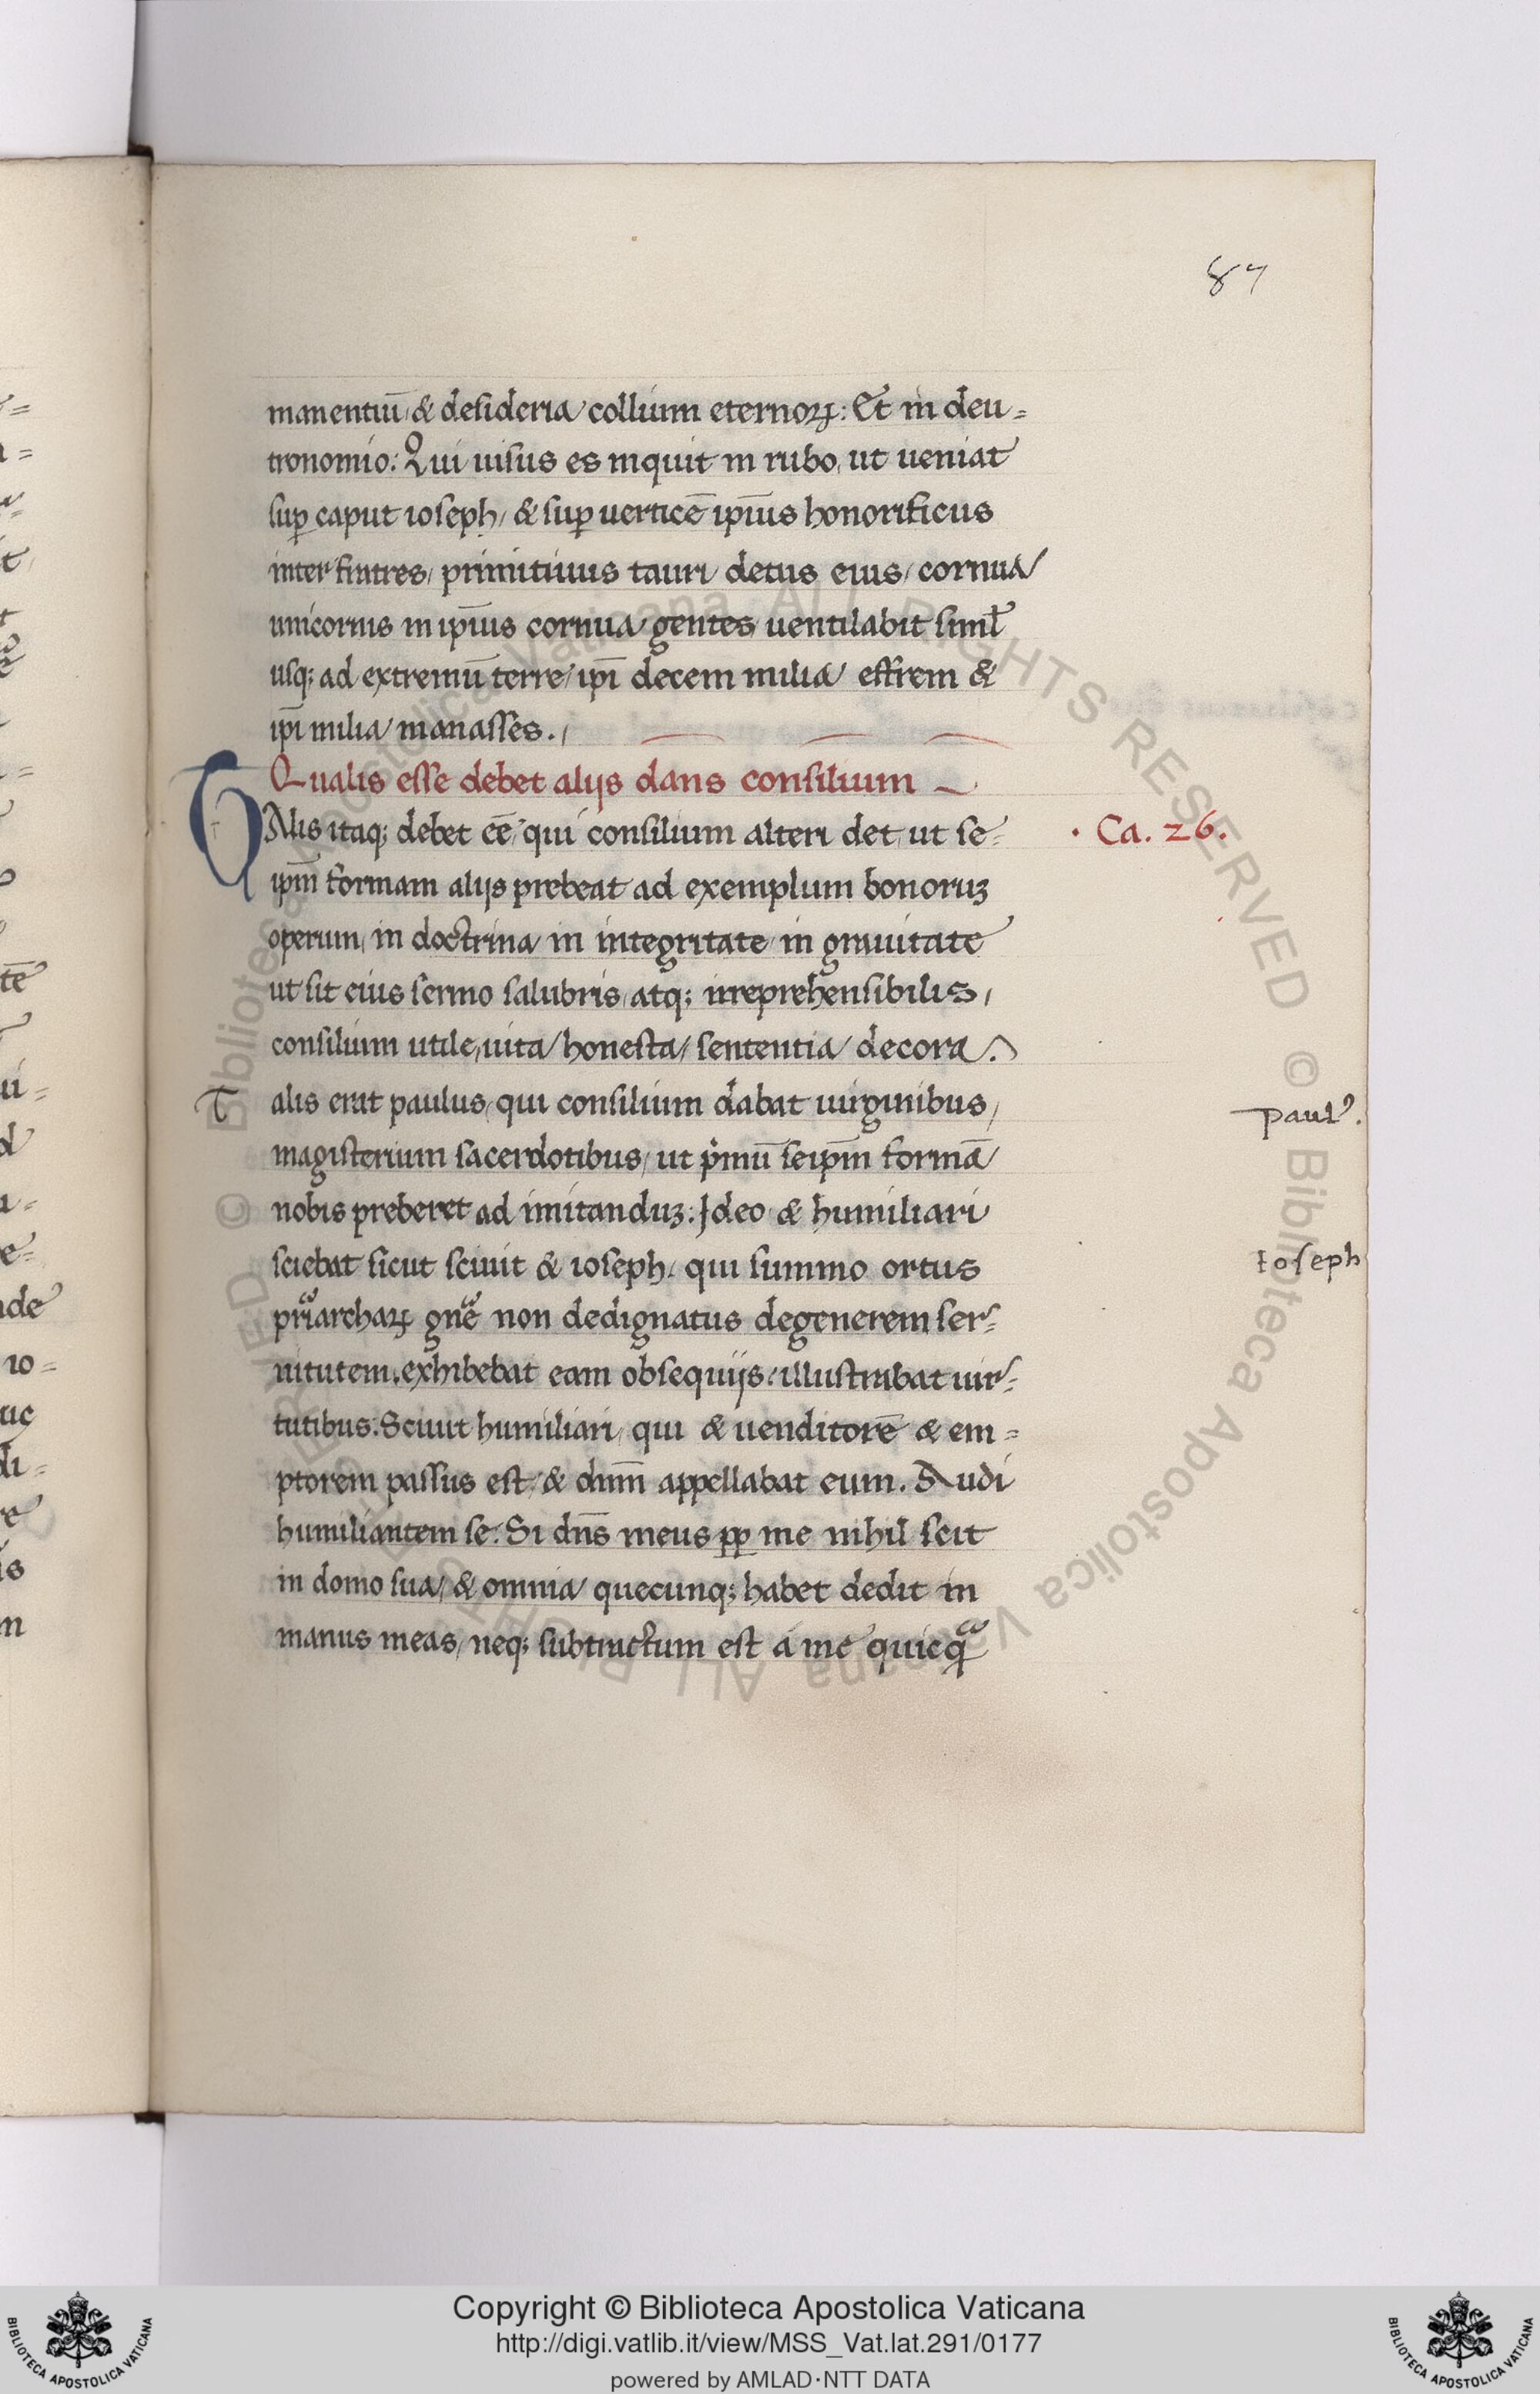 87
manentiū & desideria collium eternoꝝ: Et in deu=
tronomio: Qui uisus es inquit in rubo, ut ueniat
suꝑ caput ioseph, & suꝑ uerticē ip̄ius honorificus
inter fratres, primitiuus tauri decus eius, cornua
unicornis in ip̄ius cornua gentes uentilabit siml̄
usq; ad extremū terre, ip̄i decem milia effrem &
ip̄i milia manasses.
Qualis esse debet alijs dans consilium
TAlis itaq; debet eē, qui consilium alteri det, ut se-
· Ca. 26.
ip̄m formam alijs prebeat ad exemplum bonoruꝫ
operum, in doctrina in integritate in grauitate
ut sit eius sermo salubris, atq; irreprehensibilis,
consilium utile, uita honesta, sententia decora.
Talis erat paulus, qui consilium dabat uirginibus,
paulꝰ.
magisterium sacerdotibus, ut pͥmū seip̄m formā
nobis preberet ad imitanduꝫ. Ideo & humiliari
sciebat sicut sciuit & ioseph, qui summo ortus
Ioseph
pr̄iarchaꝝ gn̄e non dedignatus degenerem ser-
uitutem, exhibebat eam obsequijs, illustrabat uir-
tutibus. Sciuit humiliari, qui & uenditorē & em=
ptorem passus est, & dnm̄ appellabat eum. Audi
humiliantem se. Si dn̄s meus ꝓp me nihil scit
in domo sua, & omnia quecunq; habet dedit in
manus meas, neq; subtractum est a me quicqͣ
Copyright © Biblioteca Apostolica Vaticana
http://digi.vatlib.it/view/MSS_Vat.lat.291/0177
powered by AMLAD·NTT DATA
BIBLIOTECA APOSTOLICA VATICANA
BIBLIOTECA APOSTOLICA VATICANA
© Biblioteca Apostolica Vaticana ALL RIGHTS RESERVED © Biblioteca Apostolica Vaticana ALL RIGHTS RESERVED